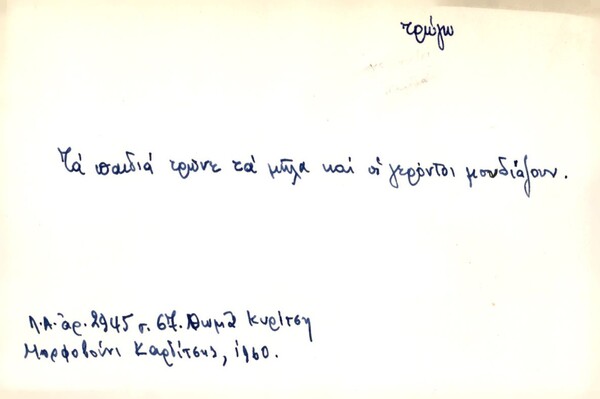 τρώγω
Τά παιδιά τρῶνε τά μῆλα καί οἱ γερόντοι μουδιάζουν.
Λ.Α. ἀρ. 2945 σ. 67. Θωμᾶ Κυρίτση
Μορφοβούνι Καρδίτσης, 1960.